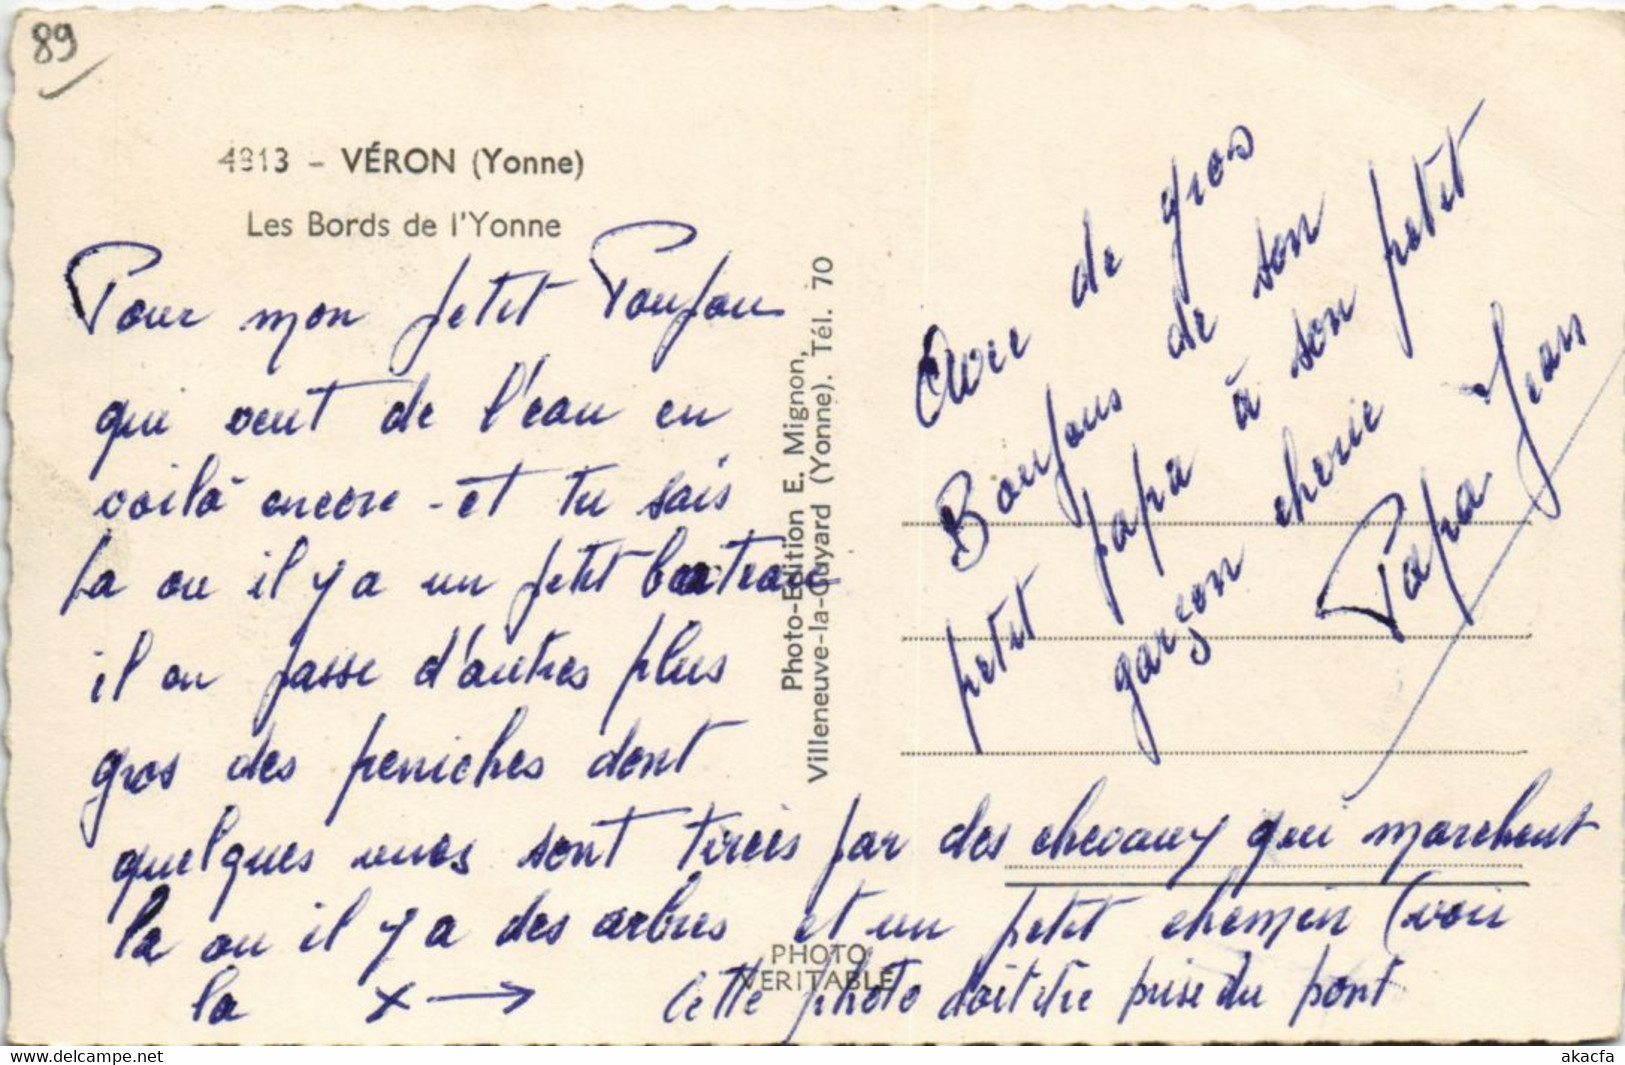 89
4813 - VÉRON (Yonne)
Les Bords de l'Yonne
Pour mon petit Poufou
qui veut de l'eau en
voilà encore - et tu sais
La ou il y a un petit bateau
il en passe d'autres plus
gros des peniches dont
quelques unes sont tirées par des chevaux qui marchent
la ou il y a des arbres et un petit chemin (voir
la x → Cette photo doit etre prise du pont
Photo-Edition E. Mignon,
Villeneuve-la-Guyard (Yonne). Tél. 70
PHOTO
VERITABLE
Avec de gros
Boujous de son
petit papa à son petit
garçon cherie
Papa Jean
akacfa-delcampe.net
akacfa